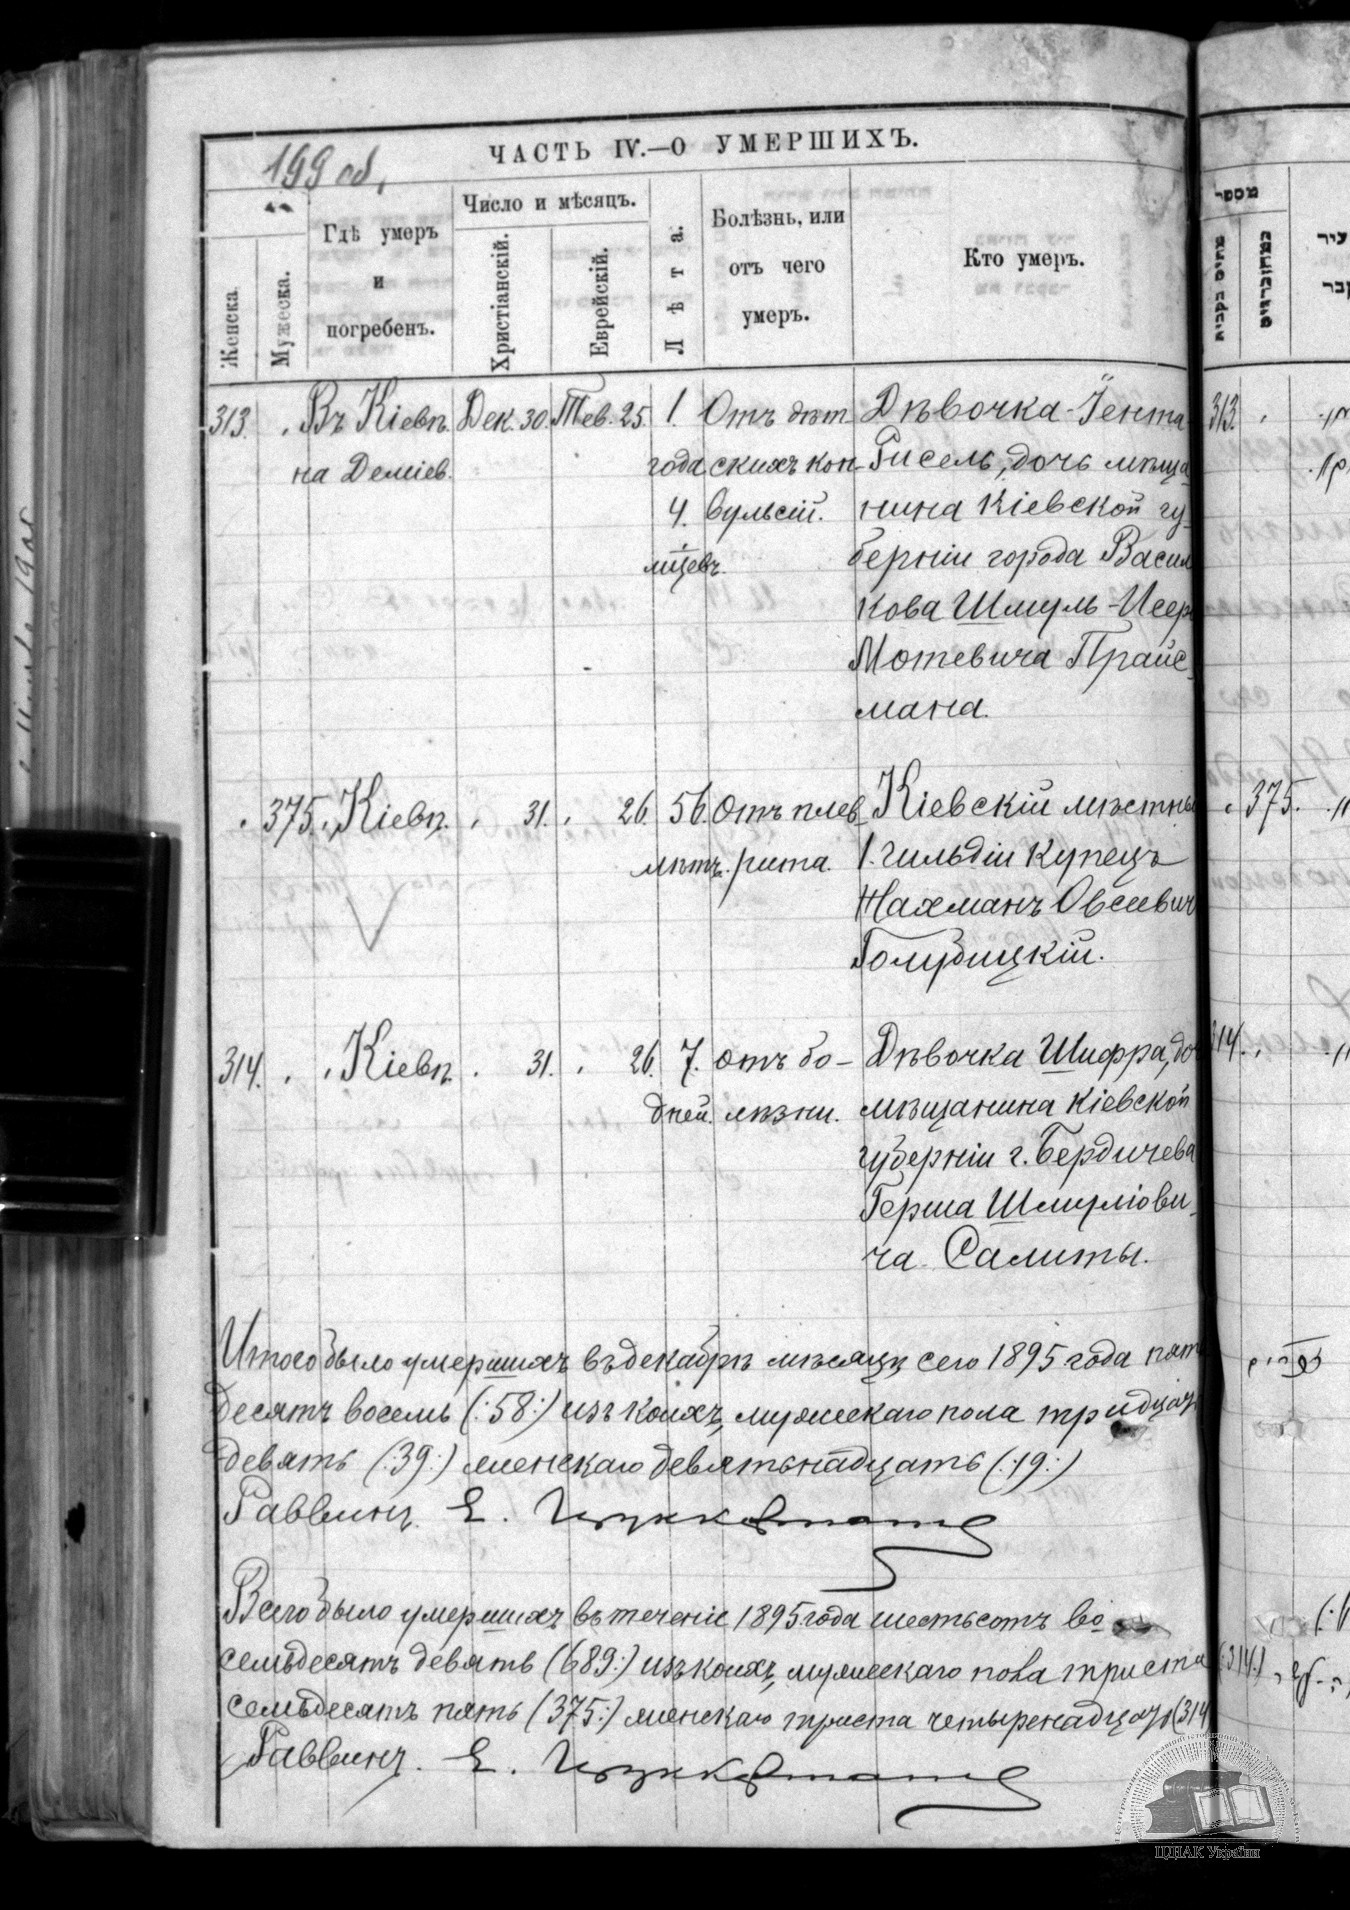 ЧАСТЬ IV.—О УМЕРШИХЪ.
199 об.
Женска.
Мужеска.
Гдѣ умеръ
и
погребенъ.
Число и мѣсяцъ.
Христіанскій.
Еврейскій.
Лѣта.
Болѣзнь, или
отъ чего
умеръ.
Кто умеръ.
מספר
313. Въ Кіевѣ Дек. 30. Тев. 25. 1. Отъ дѣт- Дѣвочка-Іента
на Деміев. года скихъ кон- Гисель, дочь мѣща
4. вульсій. нина Кіевской гу-
мѣцевъ. берніи города Васил
кова Шмуль-Исер
Мотевича Прайс-
мана.
375. Кіевѣ. 31. 26. 56. Отъ плев- Кіевскій мѣстный
лѣтъ. рита. 1. гильдіи купецъ
Нахманъ Овсеевич
Голубицкій.
314. Кіевѣ. 31. 26. 7. отъ бо- Дѣвочка Шифра, до
дней. лѣзни. мѣщанина Кіевской
губерніи г. Бердичева
Герша Шмуліови-
ча Салиты.
Итого было умершихъ въ декабрѣ мѣсяцѣ сего 1895 года пять
десятъ восемь (:58:) изъ коихъ, мужескаго пола тридцать
девять (:39:) женскаго девятьнадцать (:19:)
Раввинъ Е.
Всего было умершихъ въ теченіе 1895 года шестьсотъ во
семьдесятъ девять (689:) изъ коихъ, мужескаго пола триста
семьдесятъ пять (375:) женскаго триста четыренадцать (314
Раввинъ. Е.
313.
375.
314.
(:314:)
ЦДІАК України